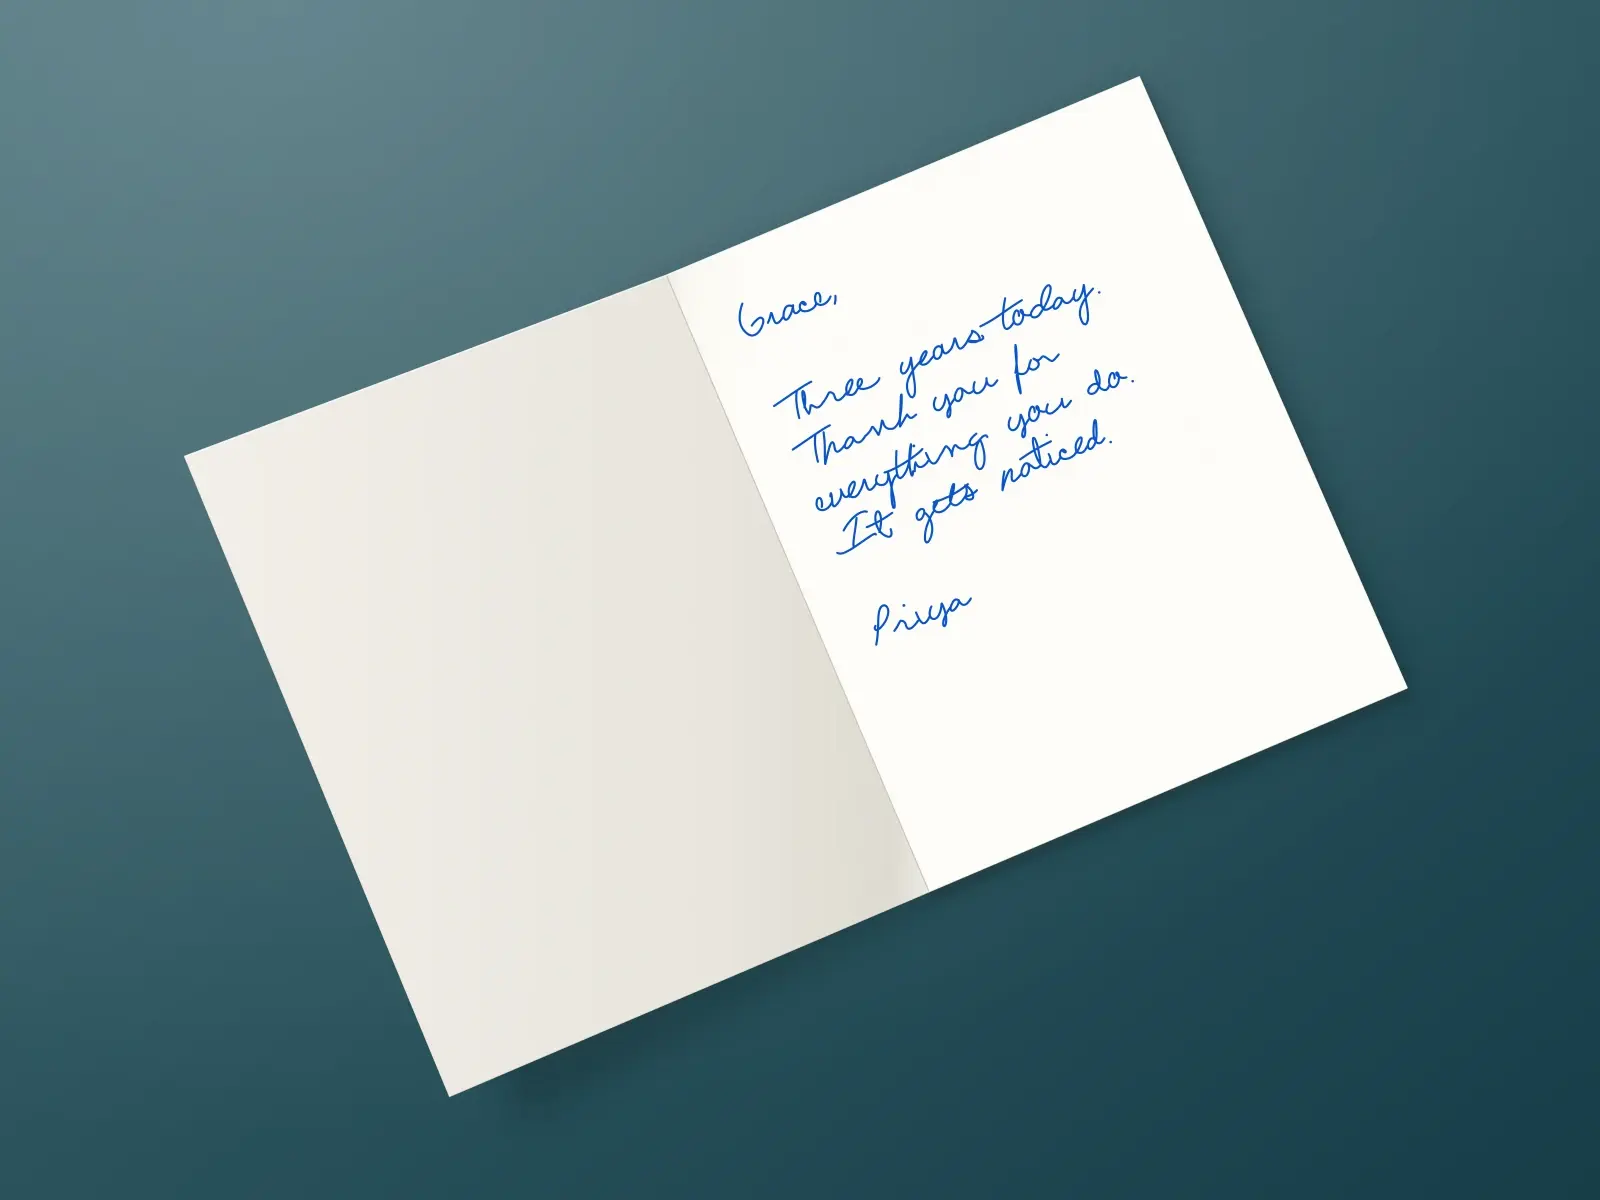 Grace,
Three years today.
Thank you for
everything you do.
It gets noticed.
Priya